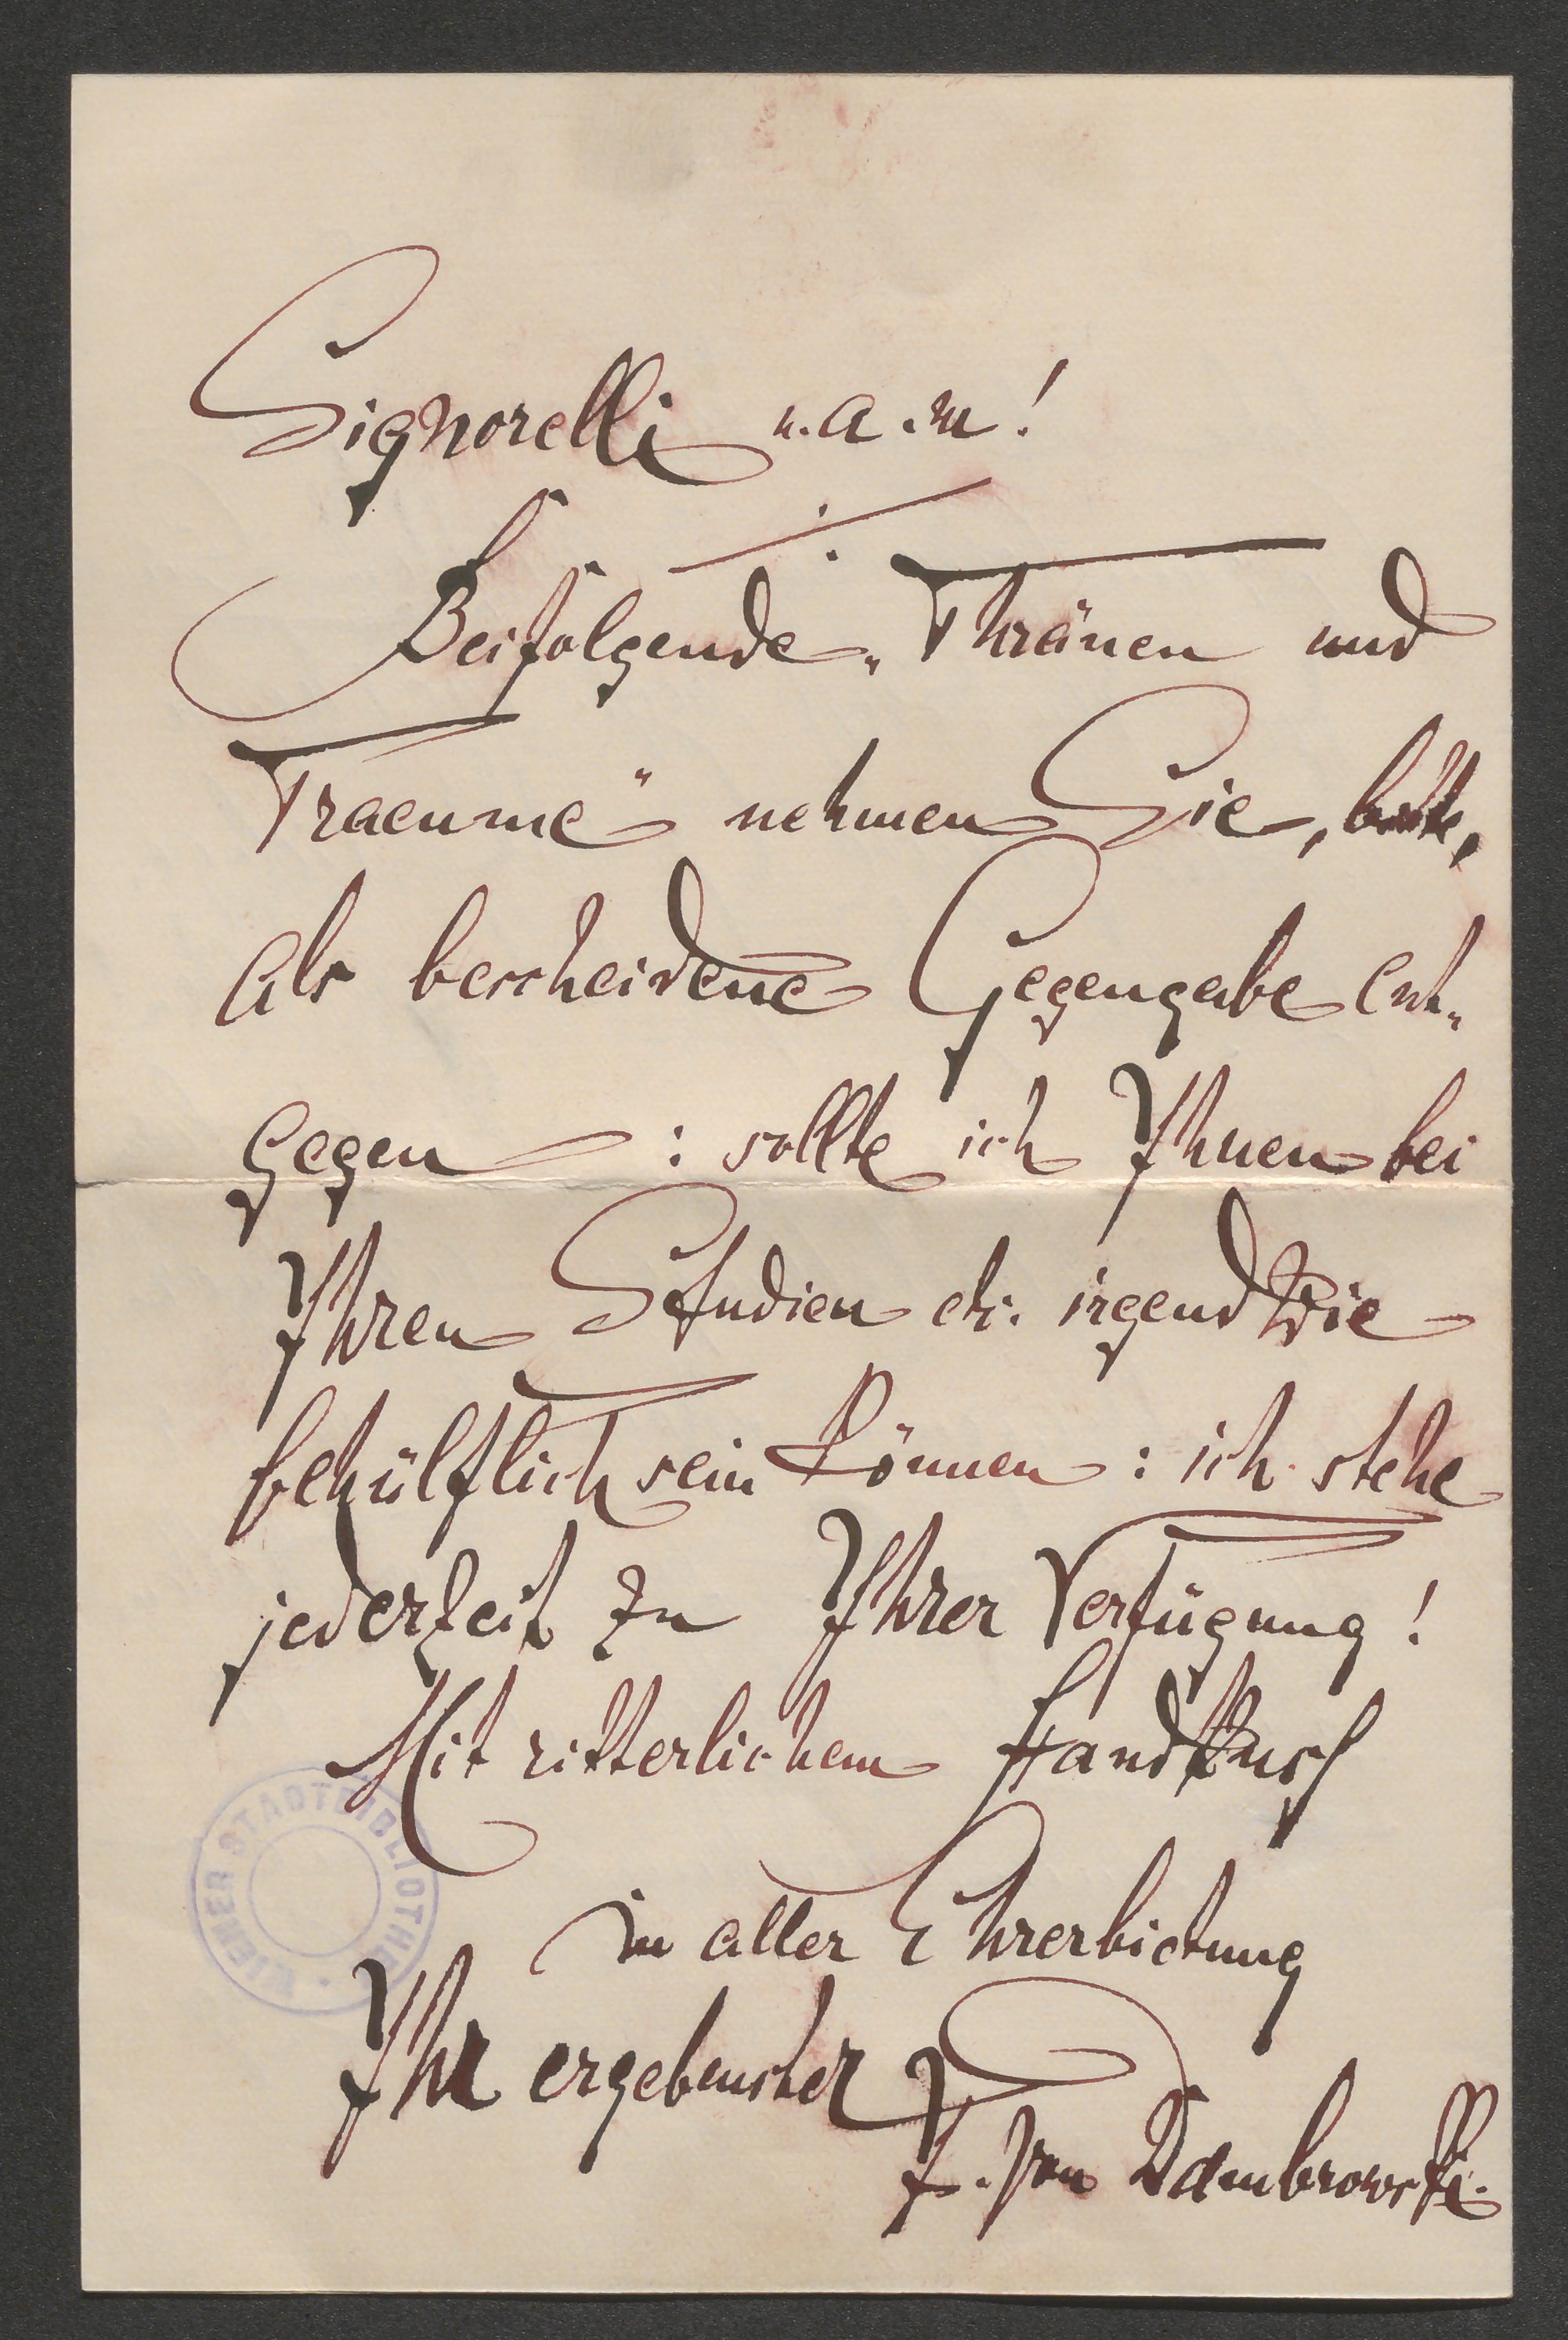 Signorelli u. a. m!
Beifolgende „Thränen und
Traeume“ nehmen Sie, bitte,
als bescheidene Gegengabe ent„
gegen : sollte ich Ihnen bei
Ihren Studien etc. irgendwie
behülflich sein können : ich stehe
jederzeit zu Ihrer Verfügung!
Mit ritterlichem Handkuss
in aller Ehrerbietung
Ihr ergebenster
von Dambrowski.
WIENER STADTBIBLIOTHEK